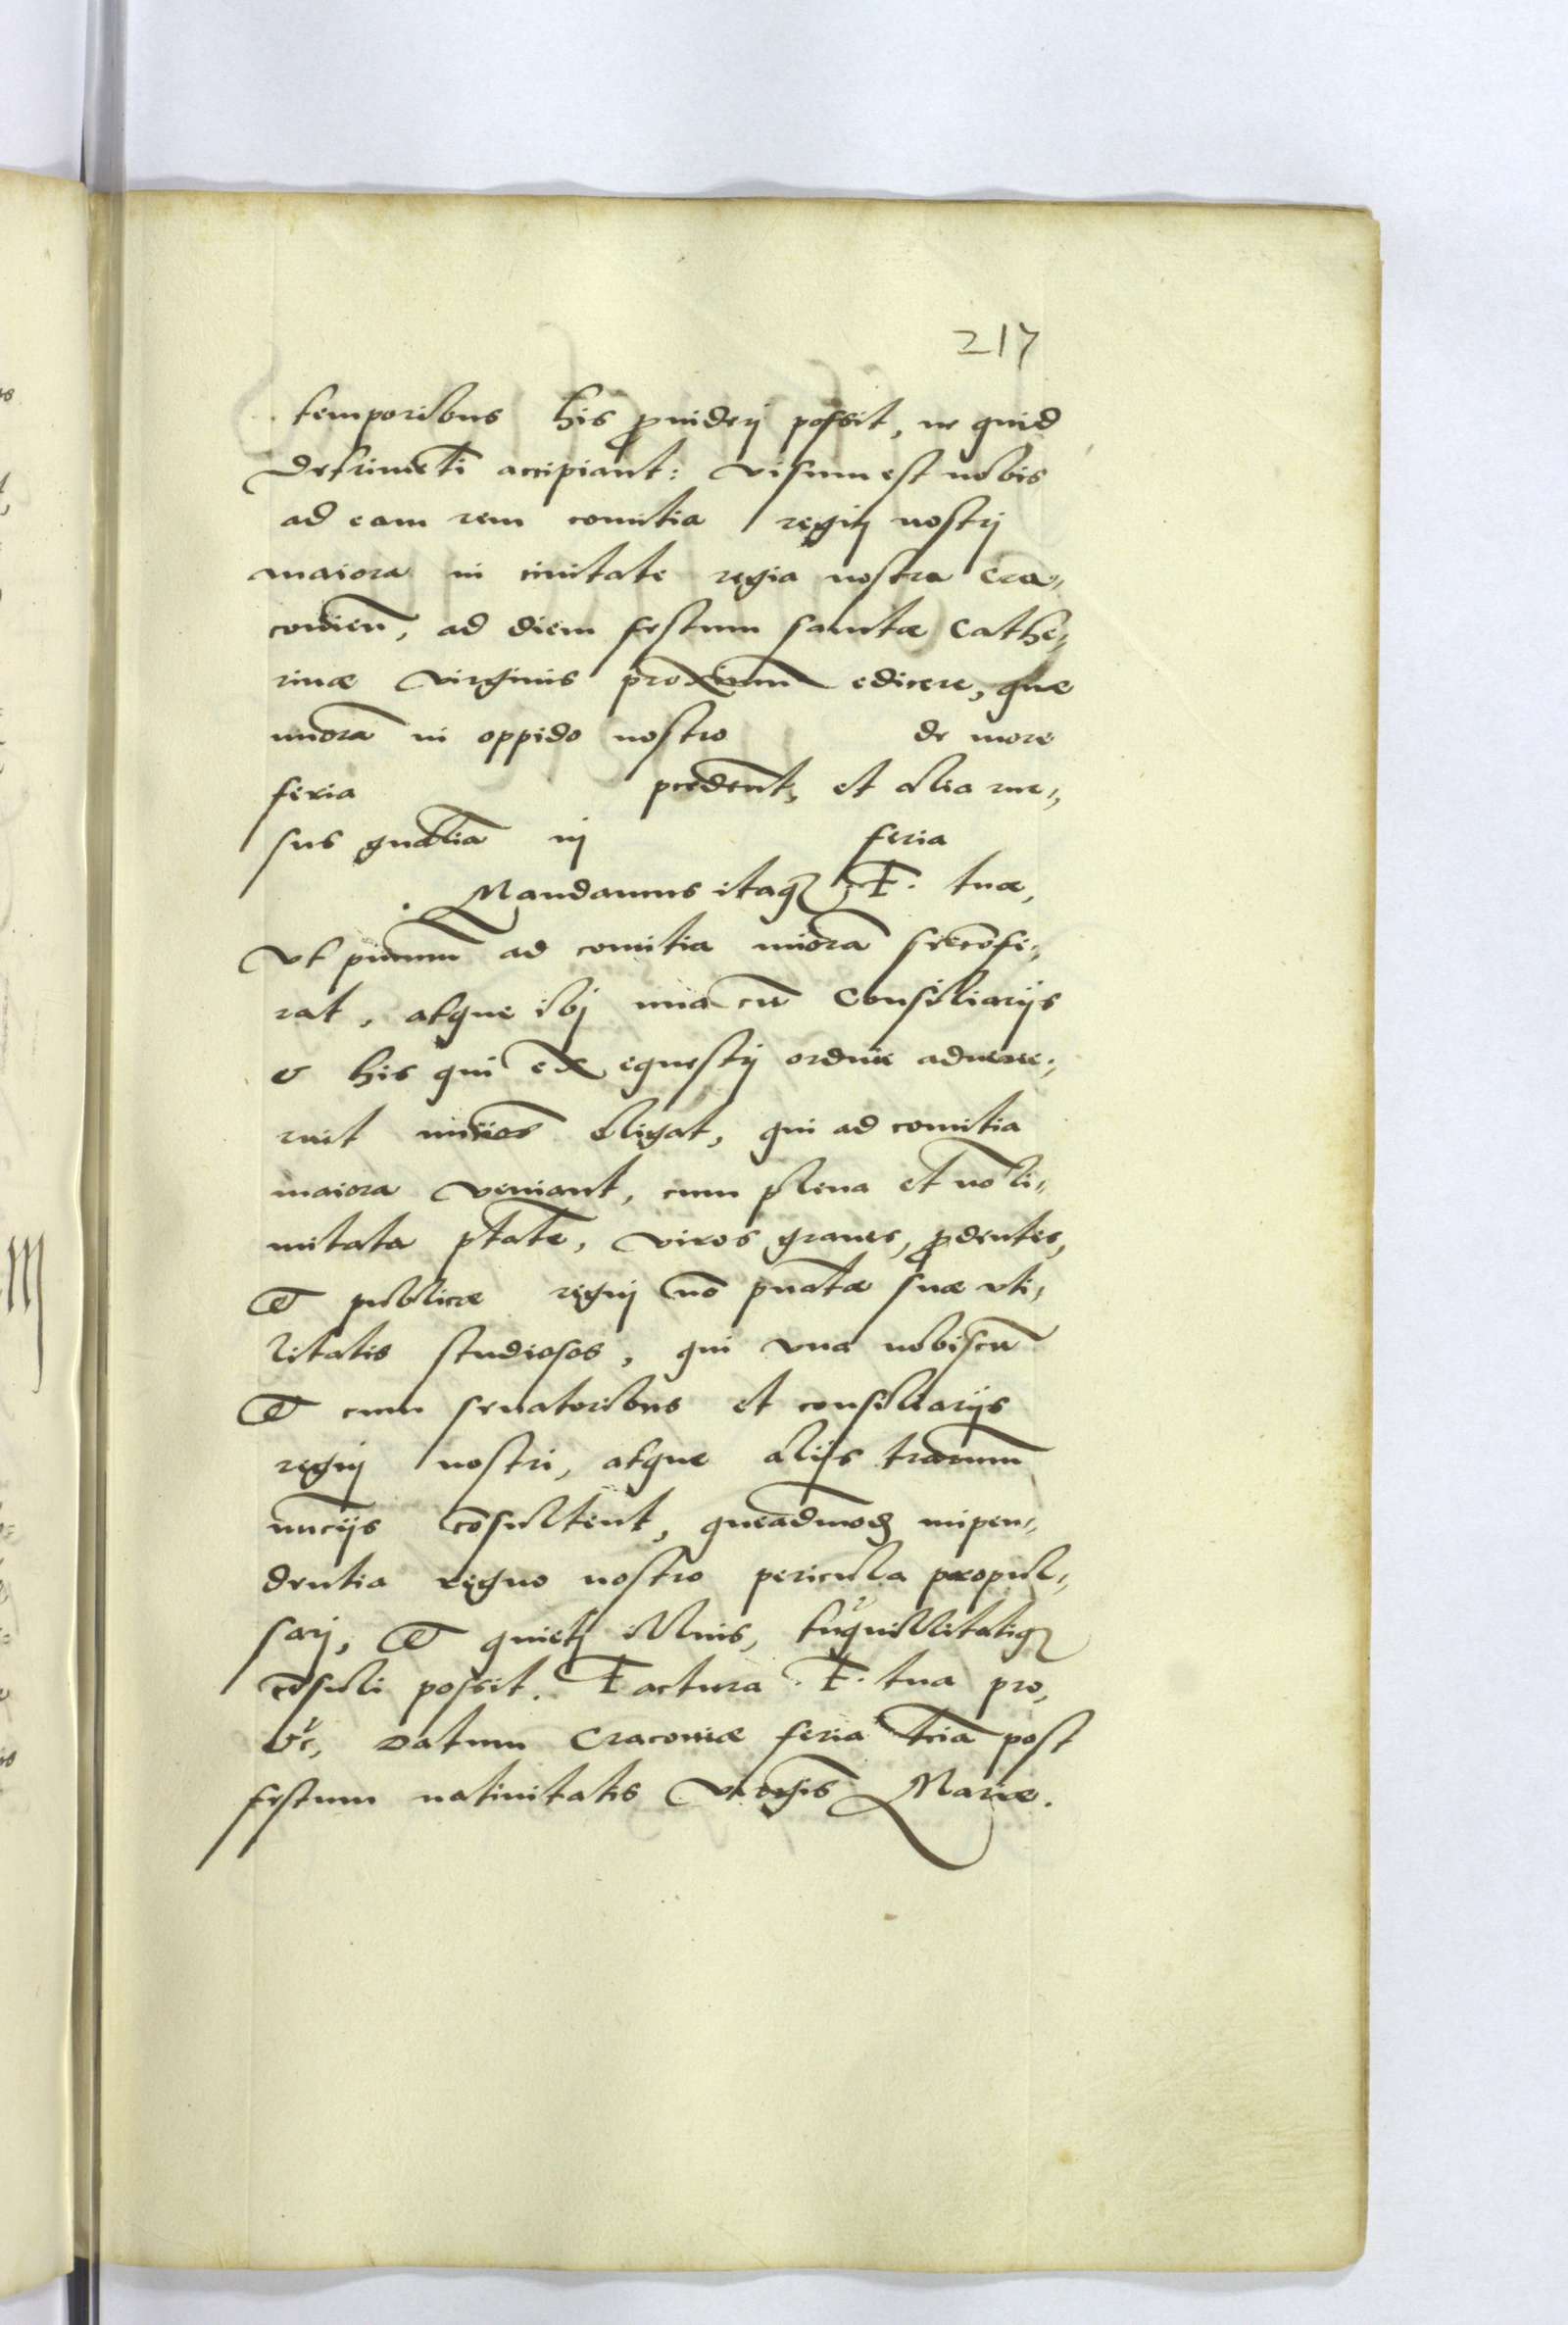 217
temporibus his ꝓuiderj possit, ne quid
detrimēti accipiant: visum est nobis
ad eam rem comitia regnj nostrj
maiora in ciuitate regia nostra Cra„
couien̄, ad diem festum sanctæ Cathe„
rinæ virginis proximum edicere, quæ
minora in oppido nostro de more
feria p̄cedent, et alia
sus gn̄alia in feria
. Mandamus itaqꝫ F. tuæ,
vt primum ad comitia miora se cōfe„
rat, atque ibj vna cū Consiliarijs
& his qui ex equestrj ordine aduene„
rint nūcios eligat, qui ad comitia
maiora veniant, cum plena et nō li„
mitata ptāte, viros graues, prudentes,
& publicæ regnj nō priuatæ suæ vti„
litatis studiosos, qui vna nobiscū
& cum senatoribus et consiliarijs
regnj nostri, atque alijs trarum
nuncijs cōsultent, queadmodū impen„
dentia regno nostro pericula propul„
sarj, & quietj illius, trāquillitatiqꝫ
cōsuli possit. Factura F. tua pro,
&c, Datum Cracouiæ feria tcia post
festum natiuitatis virginis Mariæ.